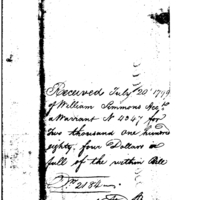 Received July 20th 1799
of William Simmons Acct
a Warrant N 4347 for
Two thousand one hundred
eighty four Dollars in
full of the within Bill
Drs 2184